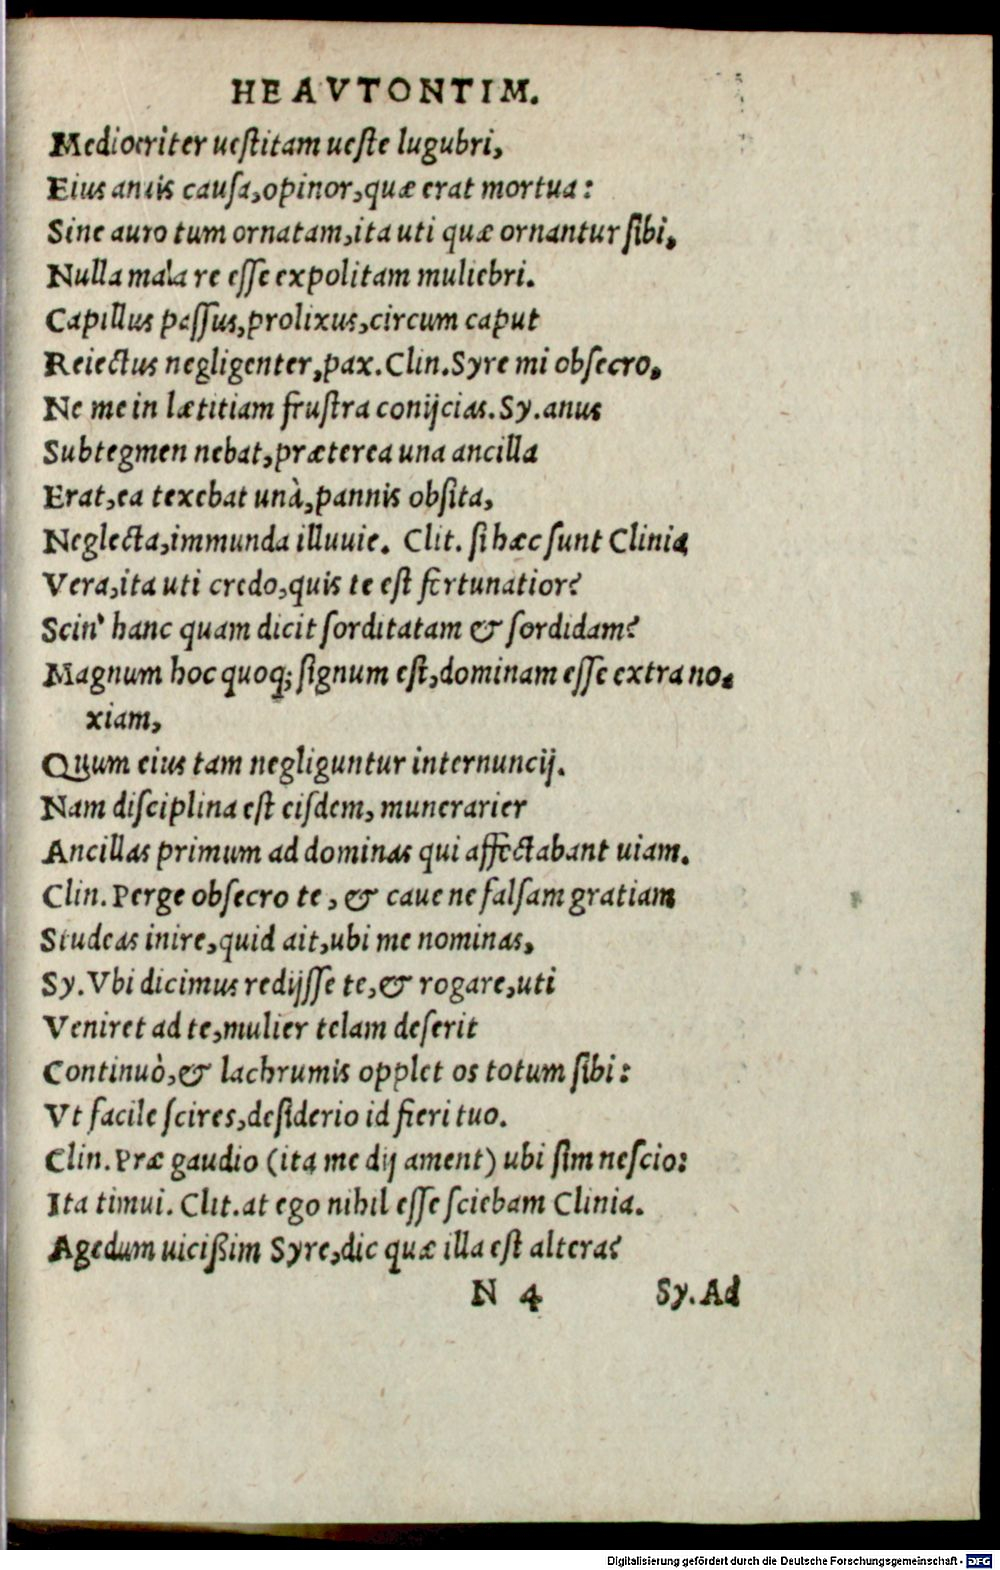 HEAVTONTIM.
Mediocriter uestitam ueste lugubri,
Eius anuis causa, opinor, quæ erat mortua:
Sine auro tum ornatam, ita uti quæ ornantur sibi,
Nulla mala re esse expolitam muliebri.
Capillus passus, prolixus, circum caput
Reiectus negligenter, pax. Clin. Syre mi obsecro,
Ne me in lætitiam frustra conijcias. Sy. anus
Subtegmen nebat, præterea una ancilla
Erat, ea texebat unà, pannis obsita,
Neglecta, immunda illuuie. Clit. si hæc sunt Clinia
Vera, ita uti credo, quis te est fortunatior?
Scin' hanc quam dicit sorditatam & sordidam?
Magnum hoc quoq; signum est, dominam esse extra no-
xiam,
Quum eius tam negliguntur internuncij.
Nam disciplina est eisdem, munerarier
Ancillas primum ad dominas qui affectabant uiam.
Clin. Perge obsecro te, & caue ne falsam gratiam
Studeas inire, quid ait, ubi me nominas,
Sy. Vbi dicimus redijsse te, & rogare, uti
Veniret ad te, mulier telam deserit
Continuò, & lachrumis opplet os totum sibi:
Vt facile scires, desiderio id fieri tuo.
Clin. Præ gaudio (ita me dij ament) ubi sim nescio:
Ita timui. Clit. at ego nihil esse sciebam Clinia.
Agedum uicißim Syre, dic quæ illa est altera?
N 4 Sy. Ad
Digitalisierung gefördert durch die Deutsche Forschungsgemeinschaft - DFG